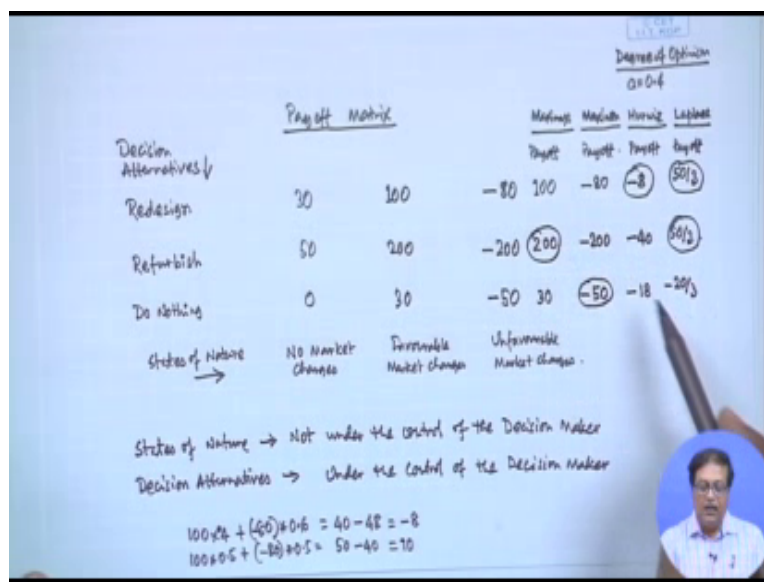 Degree of Optimism
α=0.4
Payoff Matrix
Maximax Maximin Hurwiz Laplace
Payoff Payoff. Payoff Payoff
Decision
Alternatives ↓
Redesign 30 100 -80 100 -80 -8 50/3
Refurbish 50 200 -200 200 -200 -40 50/3
Do Nothing 0 30 -50 30 -50 -18 -20/3
States of Nature → No Market Changes Favourable Market Changes Unfavourable Market Changes.
States of Nature → Not under the control of the Decision Maker
Decision Alternatives → Under the control of the Decision Maker
100×.4 + (-80)*0.6 = 40-48 = -8
100*0.5 + (-80)*0.5 = 50-40 = 10